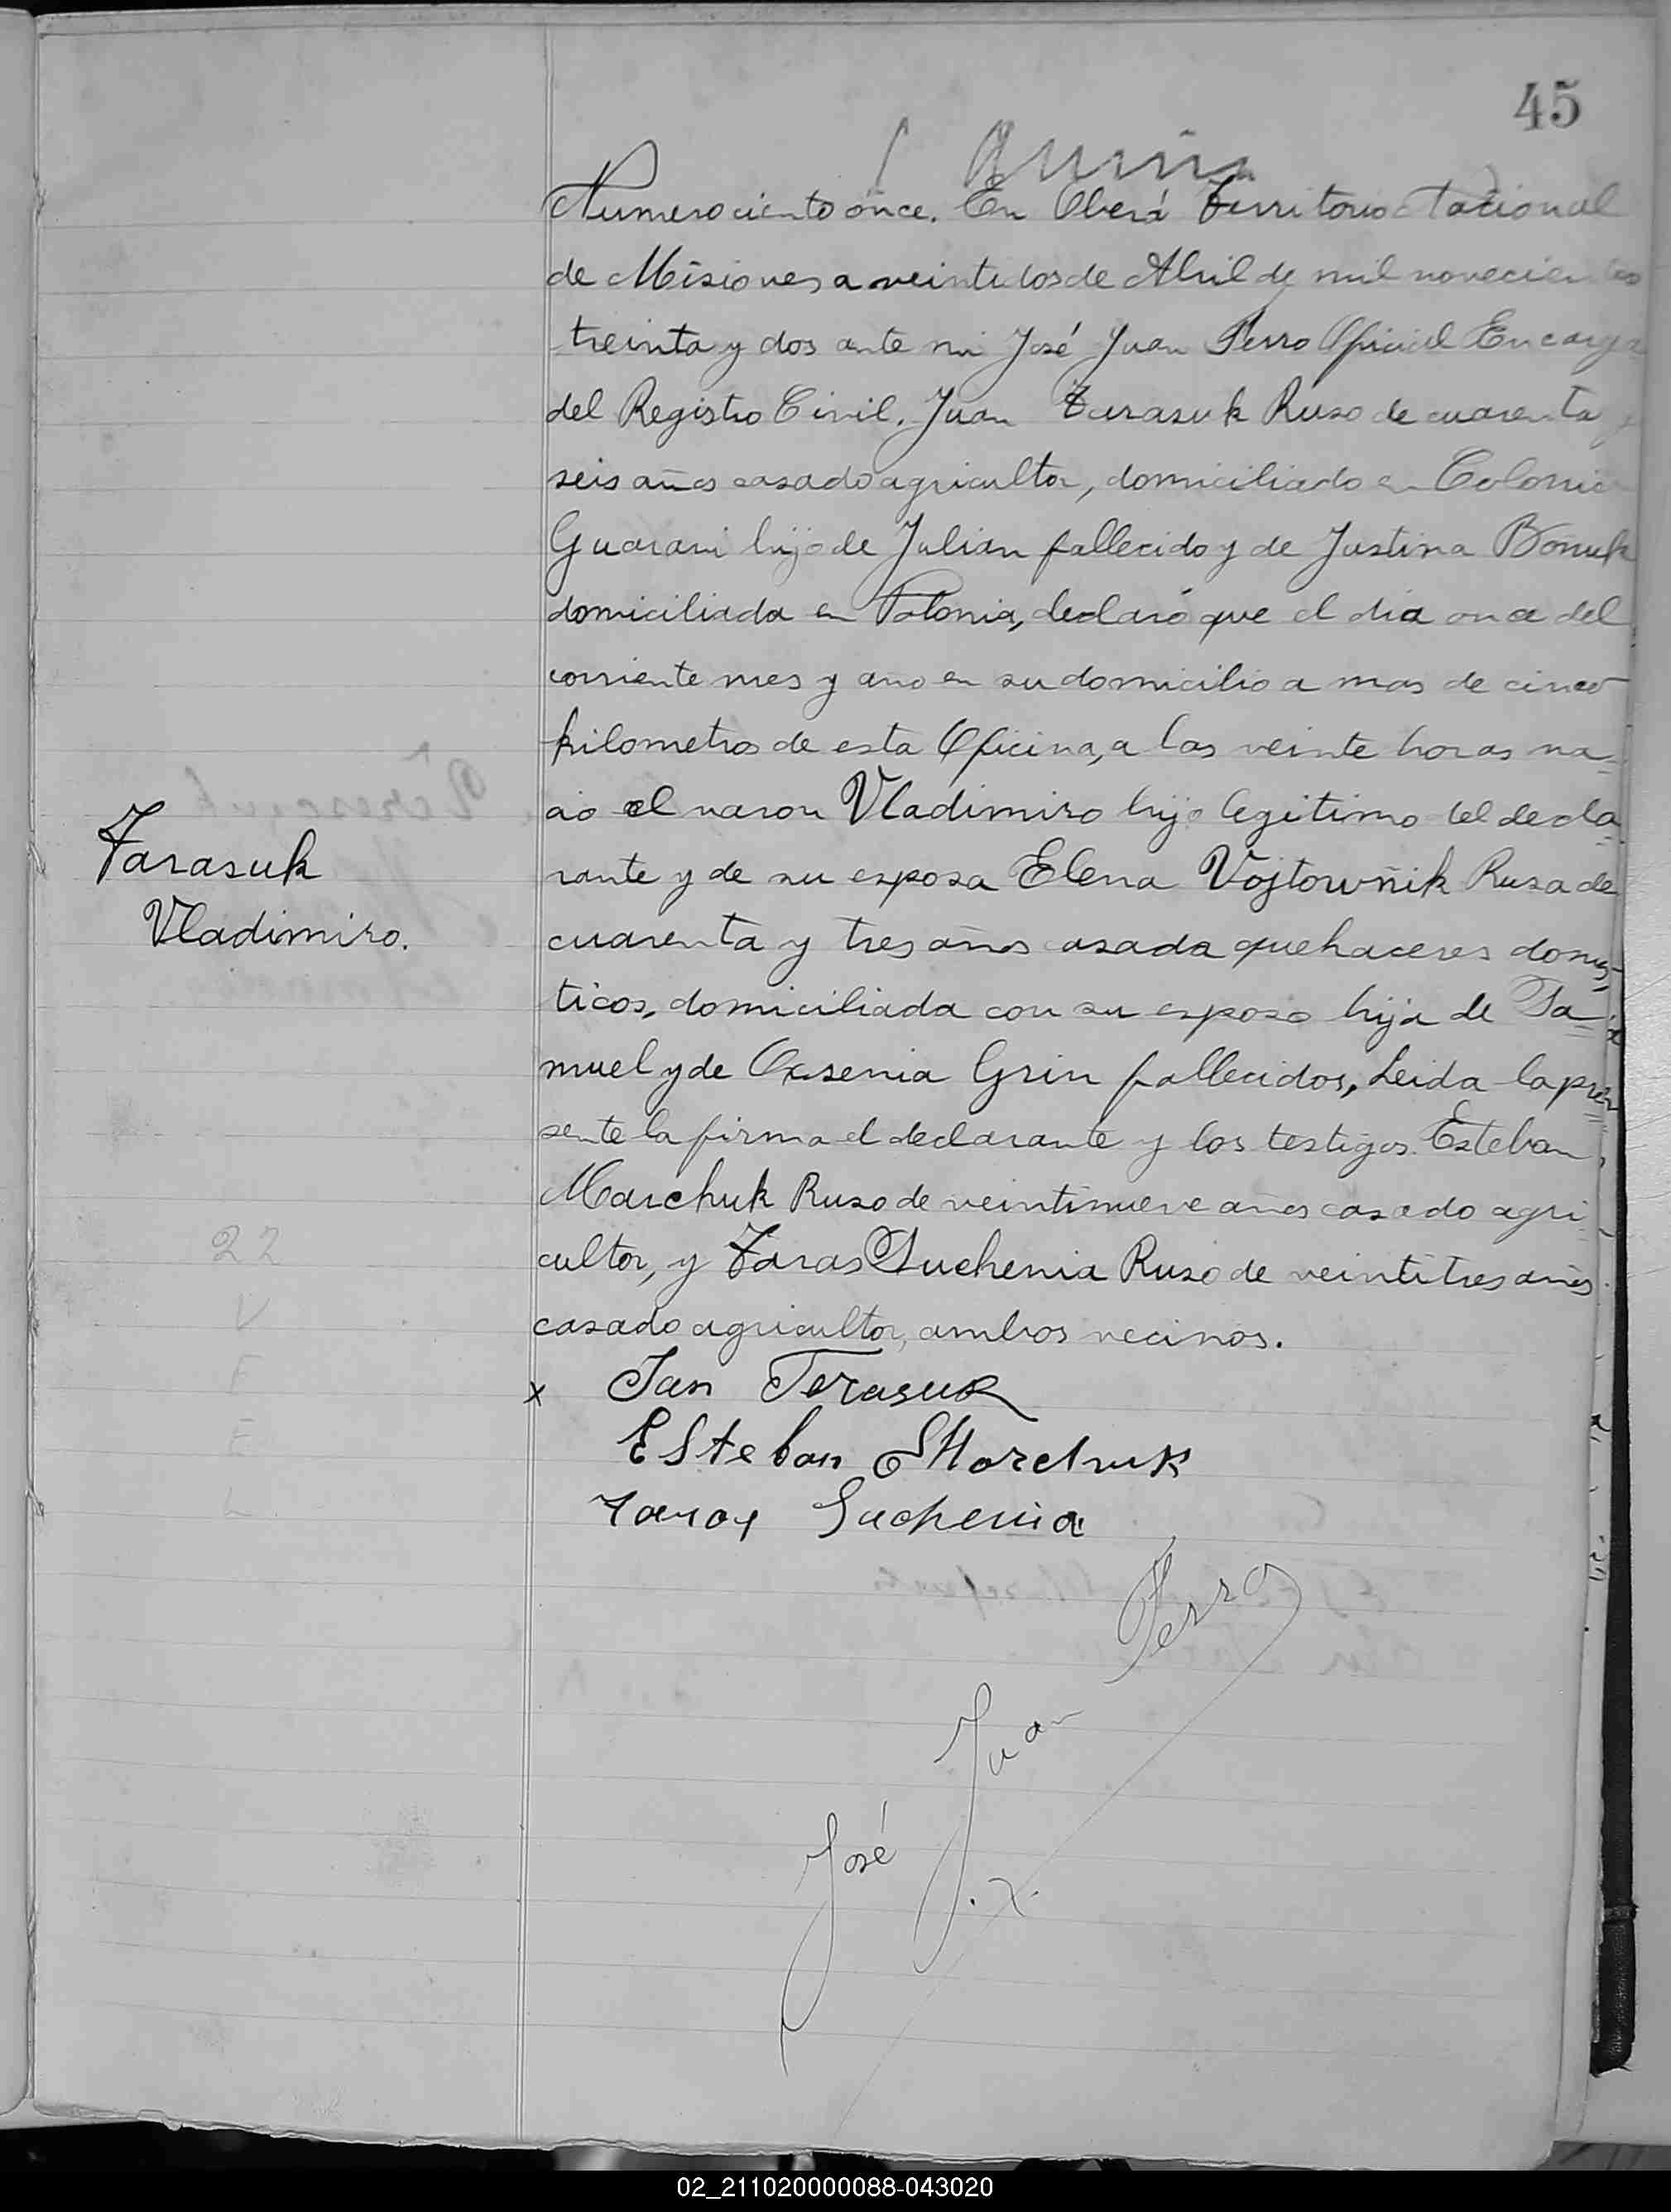 45
Numero ciento once. En Oberá Territorio Nacional
de Misiones a veintidos de Abril de mil novecientos
treinta y dos ante mi José Juan Perro Oficial Encarga
del Registro Civil. Juan Tarasuk Ruso de cuarenta y
seis años casado agricultor, domiciliado en Colonia
Guarani hijo de Julian fallecido y de Justina Bonuk
domiciliada en Polonia, declaró que el dia once del
corriente mes y año en su domicilio a mas de cinco
kilometros de esta Oficina, a las veinte horas na-
cio el varon Vladimiro hijo legitimo del decla-
Tarasuk
Vladimiro.
rante y de su esposa Elena Vojtowñik Rusa de
cuarenta y tres años casada quehaceres domes-
ticos, domiciliada con su esposo hija de Sa-
muel y de Oxsenia Grin fallecidos, Leida la pre-
sente la firma el declarante y los testigos Esteban
Marchuk Ruso de veintinueve años casado agri-
cultor, y Taras Suchenia Ruso de veintitres años
casado agricultor, ambos vecinos.
22
V
F
E
L
x Jan Terasuk
Esteban Marchuk
Taras Suchenia
José Juan Perro
02_211020000088-043020